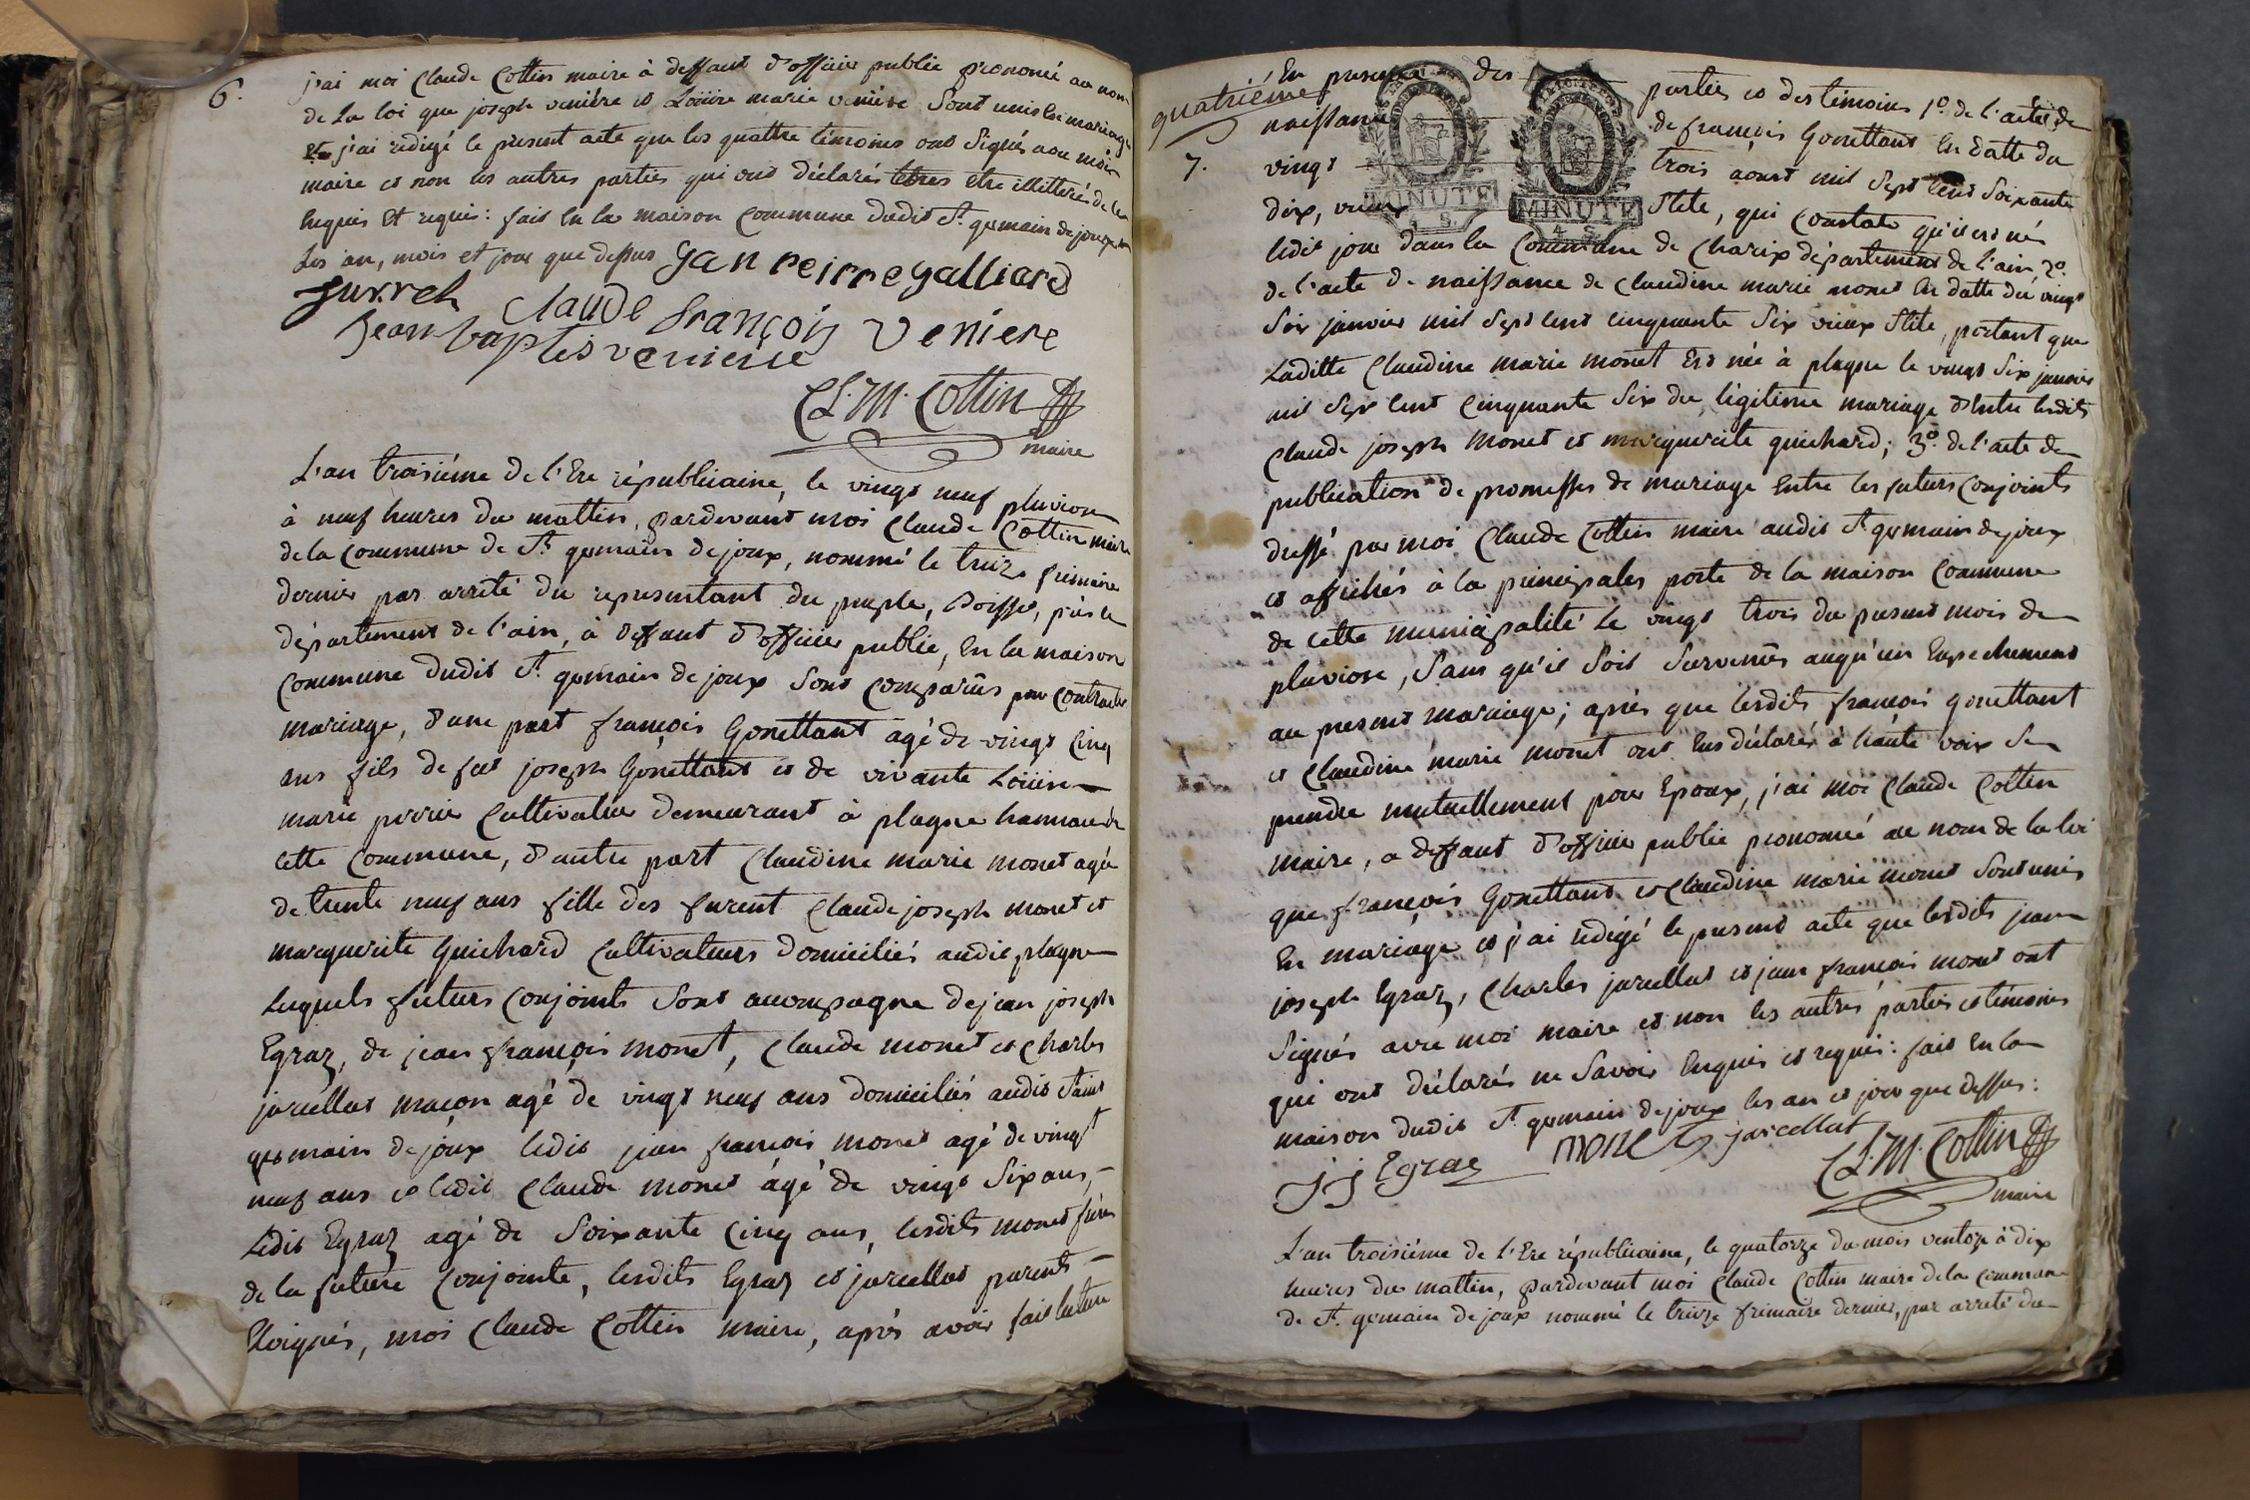 6.
j'ai moi Claude Cottin maire à deffaut d'officier public prononcé au nom
de La loi que joseph venière et Loüise marie venière sont unis en mariage
j'ai redigé le present acte que les quattre témoins ont signés avec moi
maire et non les autres parties qui ont déclarés être illitterés de ce
enquis et requis: fait en la maison commune dudit St. germain de joux
Les an, mois et jour que dessus Jan peirre galliard
Jurret Claude françois Veniere
Jean baptis veniere
Cl. M. Cottin
maire
L'an troisième de l'Ere républicaine, le vingt neuf pluviose
à neuf heures du mattin, pardevant moi Claude Cottin maire
de la commune de St. germain de joux, nommé le treize frimaire
dernier par arrêté du representant du peuple, Boisset, près le
département de l'ain, à deffaut d'officier public, en la maison
commune dudit St. germain de joux sont comparûs pour contracter
mariage, d'une part françois Gonettant agé de vingt cinq
ans fils de feu joseph Gonettant et de vivante Loüise
marie perrier Cultivateur demeurant à plagne hameau de
cette commune, d'autre part Claudine marie monet agée
de trente neuf ans fille des furent Claude joseph monet et
marguerite Guichard Cultivateurs domiciliés audit plagne
Lesquels futurs conjoints sont accompagne de jean joseph
Egraz, de jean françois monet, Claude monet et Charles
jarcellat maçon agé de vingt neuf ans domiciliés audit saint
germain de joux ledit jean françois monet agé de vingt
neuf ans et ledit Claude monet âgé de vingt six ans,
Ledit Egraz agé de soixante cinq ans, lesdits monet frères
de la future conjointe, lesdits Egraz et jarcellat parents
Eloignés, moi Claude Cottin maire, après avoir fait lecture
quatrième
7.
En presence des parties et des témoins 1°. de l'acte de
naissance de françois Gonettant en datte du
vingt trois aoust mil sept cent soixante
dix, vieux stile, qui constate qu'il est né
ledit jour dans la commune de Charix département de l'ain, 2°.
de l'acte de naissance de Claudine marie monet en datte du vingt
six janvier mil sept cent cinquante six vieux stile, portant que
Laditte Claudine marie monet est née à plagne le vingt six janvier
mil sept cent cinquante six du légitime mariage d'entre lesdits
Claude joseph monet et marguerite guichard; 3°. de l'acte de
publication de promesses de mariage entre les futurs conjoints
dressé par moi Claude Cottin maire audit St. germain de joux
et affichés à la principales porte de la maison commune
de cette municipalité Le vingt trois du present mois de
pluviose, sans qu'il soit survenûs auqu'un empechement
au present mariage; après que lesdits françois gonettant
et Claudine marie monet ont eus déclarés à haute voix se
prendre mutuellement pour Epoux, j'ai moi Claude Cottin
maire, a deffaut d'officier public prononcé au nom de la loi
que françois Gonettant et Claudine marie monet sont unis
En mariage et j'ai redigé le present acte que lesdits jean
joseph Egraz, Charles jarcellat et jean françois monet ont
signés avec moi maire et non les autres parties et témoins
qui ont déclarés ne savoir enquis et requis: fait en la
maison dudit St. germain de joux les an et jour que dessus:
MINUTE
4 S.
MINUTE
4 S.
j j Egraz monet jarcellat
Cl. M. Cottin
maire
L'an troisième de l'Ere républicaine, le quatorze du mois ventose à dix
heures du mattin, pardevant moi Claude Cottin maire de la commune
de St. germain de joux nommé le treize frimaire dernier, par arrêté du